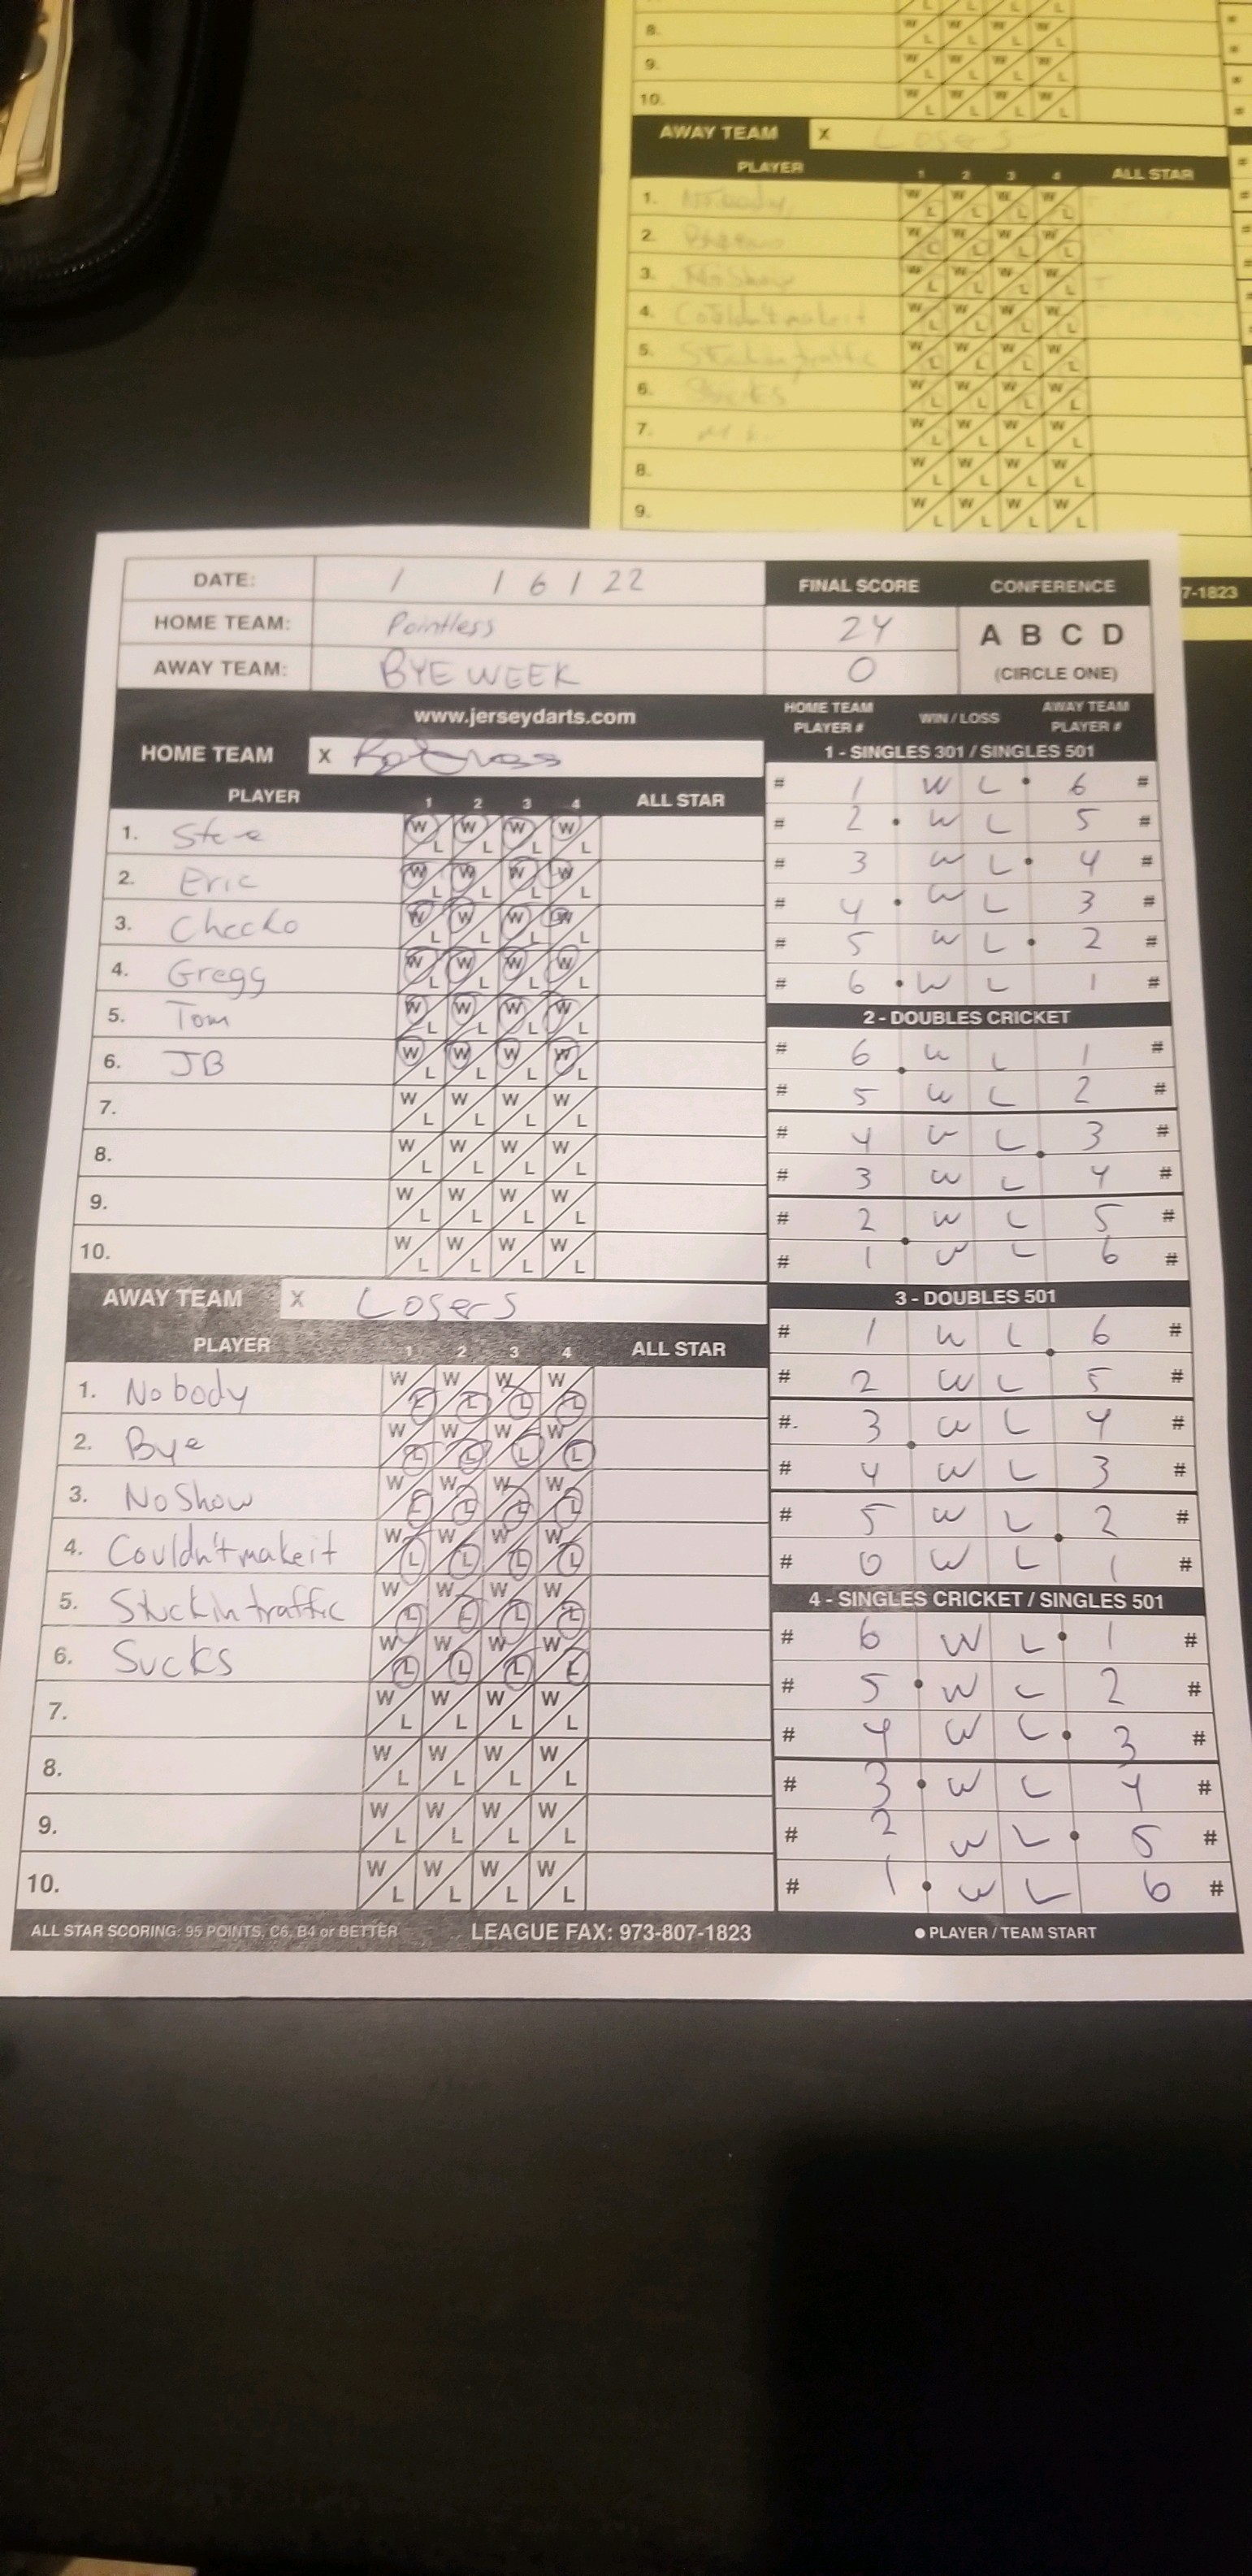 8. W L W L W L W L
9. W L W L W L W L
10. W L W L W L W L
AWAY TEAM X Losers
PLAYER 1 2 3 4 ALL STAR
1. Nobody W L W L W L W L
2. W L W L W L W L
3. No Show W L W L W L W L
4. Couldn't make it W L W L W L W L
5. Stuck in traffic W L W L W L W L
6. Sucks W L W L W L W L
7. W L W L W L W L
8. W L W L W L W L
9. W L W L W L W L
7-1823
DATE: 1 / 6 / 22
HOME TEAM: Pointless
AWAY TEAM: BYE WEEK
FINAL SCORE
24
0
CONFERENCE
A B C D
(CIRCLE ONE)
www.jerseydarts.com
HOME TEAM X
PLAYER 1 2 3 4 ALL STAR
1. Steve W L W L W L W L
2. Eric W L W L W L W L
3. Checko W L W L W L W L
4. Gregg W L W L W L W L
5. Tom W L W L W L W L
6. JB W L W L W L W L
7. W L W L W L W L
8. W L W L W L W L
9. W L W L W L W L
10. W L W L W L W L
AWAY TEAM X Losers
PLAYER 1 2 3 4 ALL STAR
1. Nobody W L W L W L W L
2. Bye W L W L W L W L
3. No Show W L W L W L W L
4. Couldn't make it W L W L W L W L
5. Stuck in traffic W L W L W L W L
6. Sucks W L W L W L W L
7. W L W L W L W L
8. W L W L W L W L
9. W L W L W L W L
10. W L W L W L W L
HOME TEAM PLAYER # WIN / LOSS AWAY TEAM PLAYER #
1 - SINGLES 301 / SINGLES 501
# 1 W L • 6 #
# 2 • W L 5 #
# 3 W L • 4 #
# 4 • W L 3 #
# 5 W L • 2 #
# 6 • W L 1 #
2 - DOUBLES CRICKET
# 6 W L 1 #
# 5 W L 2 #
# 4 W L 3 #
# 3 W L 4 #
# 2 W L 5 #
# 1 W L 6 #
3 - DOUBLES 501
# 1 W L 6 #
# 2 W L 5 #
# 3 W L 4 #
# 4 W L 3 #
# 5 W L 2 #
# 0 W L 1 #
4 - SINGLES CRICKET / SINGLES 501
# 6 W L • 1 #
# 5 • W L 2 #
# 4 W L • 3 #
# 3 • W L 4 #
# 2 W L • 5 #
# 1 • W L 6 #
ALL STAR SCORING: 95 POINTS, C6, B4 or BETTER
LEAGUE FAX: 973-807-1823
● PLAYER / TEAM START